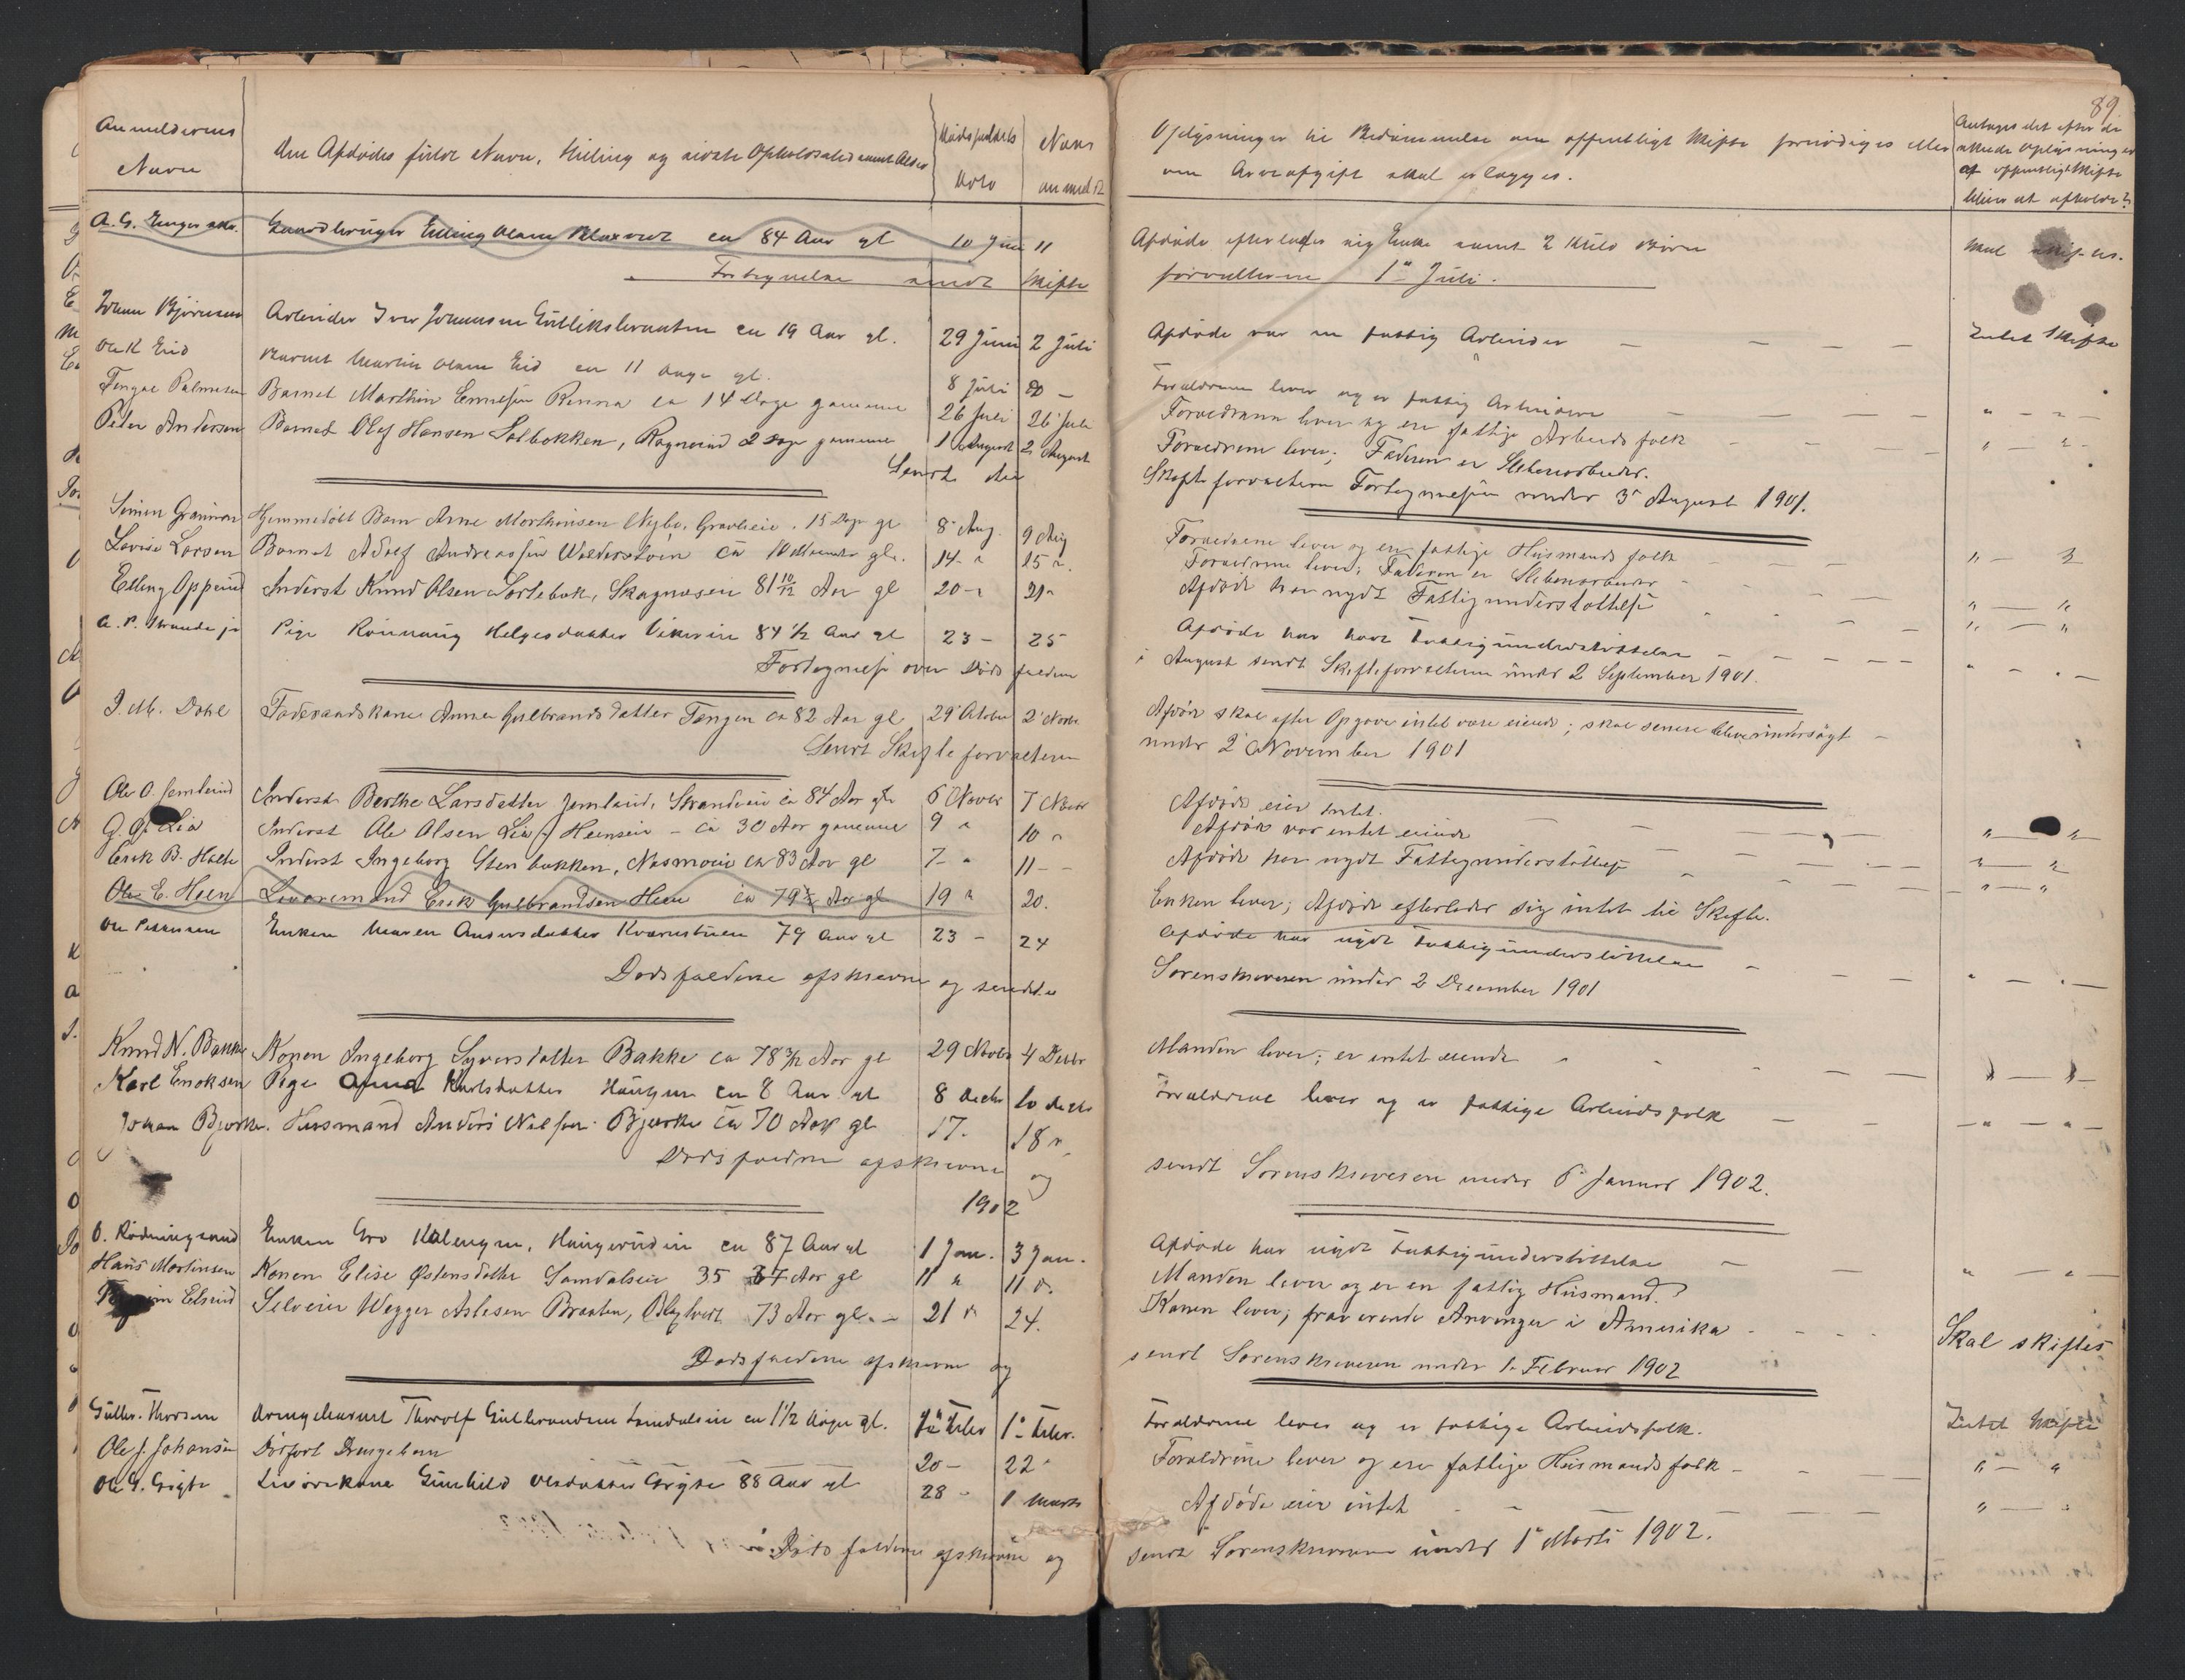 Anmelderens
Navn
Den Afdødes fulde Navn, Stilling og sidste Opholdssted samt Alder
Dødsfaldets
Dato
Naar
anmeldt
A. G. Enger
Gaardbruger Elling Olsen ca 84 Aar gl 10 Juni 11
Fortegnelse sendt Skifte
Johan Bjørnsen Arbeider Iver Johannsen Gulliksbraaten ca 19 Aar gl. 29 Juni 2 Juli
Ole K Eid Barnet Martin Olsen Eid ca 11 Dage gl. 8 Juli
Palmesen Barnet Marthin Emilsen Renna ca 14 Dage gammel 26 Juli 26 Juli
Peder Andersen Barnet Olaf Hansen Solbakken, 2 Dage gammel 1 August 2 August
Sendt
Simen Hjemmedøbt Barn Arne Morthinsen Nybo, 15 Dage gl 8 Aug. 9 Aug
Lovise Larsen Barnet Adolf Andreassen ca 10 Maaneder gl. 14 " 15 "
Elling Oppeud Inderst Knud Olsen Sørlebøk, Skagnæseie 81 10/12 Aar gl 20 " 21 "
A. P. Strande jr Pige Rønnaug Helgesdatter Vikereie 84 1/2 Aar gl 23 – 25
Fortegnelse over Døds faldene
J. M. Dahl Føderaadskone Anne Gulbrandsdatter Tangen ca 82 Aar gl 29 Oktober 2 Novbr
Sendt Skifteforvalteren
Ole O. Jemteiud Inderst Berthe Larsdatter Jemteiud, Strandeie ca 84 Aar gl 6 Novbr 7 Novbr
G. O. Lia Inderst Ole Olsen Lia, Heenseie – ca 30 Aar gammel 9 " 10 "
Erik B. Holte Inderst Ingeborg Stenbakken, Næsmoeie ca 83 Aar gl 7 – " 11 – –
Ole E. Heen Livøremand Erik Gulbrandsen Heen ca 79 1/2 Aar gl 19 " 20.
Ole Pedersen Enken Maren Andersdatter Kværnstuen 79 Aar gl 23 – 24
Dødsfaldene afskrevne og sendt
Knud N. Bakke Konen Ingeborg Syversdatter Bakke ca 78 3/12 Aar gl 29 Novbr 4 Decbr
Karl Enoksen Pige Anna Karlsdatter ca 8 Aar gl 8 Decbr 10 Decbr
Johan Bjørke. Husmand Anders Nilsen Bjørke ca 70 Aar gl 17. 18 "
Dødsfaldene afskrevne og
1902
O. Rødningsand Enken Gro Kolengen, Haugerudeie ca 87 Aar gl 1 Jan. 3 Jan.
Hans Mortinsen Konen Elise Østensdatter Semdalseie 35 Aar gl 11 " 11 "
Elsrud Selveier Wegger Aslesen Braaten, 73 Aar gl. – 21 " 24.
Dødsfaldene afskrevne og
Gulbr. Thorsen Drengebarnet Thorolf Gulbrandsen Semdalseie ca 1 1/2 Dage gl. Febr 1 Febr.
Ole J. Johansen Dødfødt Drengebarn 20 – 22 "
Ole G. Grøgte Livørekone Gunhild Olsdatter Grøgte 88 Aar gl 28 – 1 Marts
Døds faldene afskrevne og
89
Oplysninger til Bedømmelse om offentligt Skifte fornødiges eller
om Arveafgift skal erlægges.
Antages det efter de
Oplysninger
at offentligt Skifte
bliver at afholde?
Afdøde efterlader sig Enke samt 2 Kuld Børn Skal skiftes.
forvalteren 1 Juli.
Afdøde var en fattig Arbeider — — — — Intet Skifte
Forældrene lever og er fattig Arbeidere — — — — " – " –
Forældrene lever og ere fattige Arbeids folk – – — — " – " –
Forældrene lever; Faderen er Sliberiarbeider.
Skifteforvalteren Fortegnelsen under 3 August 1901.
Forældrene lever og ere fattige Husmands folk – — — " —
Forældrene lever; Faderen er Sliberiarbeider – — — " — "
Afdøde har nydt Fattigunderstøttelse — — " — "
Afdøde har havt Fattigunderstøttelse – – — —
i August sendt Skifteforvalteren under 2 September 1901.
Afdøde skal efter Opgave intet være eiende; skal senere blive undersøgt –
under 2 November 1901
Afdøde eier intet. — — — " — "
Afdøde var intet eiende — — — " — "
Afdøde har nydt Fattigunderstøttelse — — — " — "
Enken lever; Afdøde efterlader sig intet til Skifte.
Afdøde har nydt Fattigunderstøttelse – — —
Sorenskriveren under 2 December 1901
Manden lever; er intet eiende
Forældrene lever og er fattige Arbeidsfolk — — — " – " –
sendt Sorenskriveren under 6 Januar 1902.
Afdøde har nydt Fattigunderstøttelse – — — " — " –
Manden lever og er en fattig Husmand.
Konen lever; fraværende Arvinger i Amerika – – – Skal skiftes
sendt Sorenskriveren under 1. Februar 1902
Forældrene lever og er fattige Arbeidsfolk. Intet Skifte
Forældrene lever og ere fattige Husmandsfolk – – — — " — "
Afdøde eier intet – – — — — " — "
sendt Sorenskriveren under 1 Marts 1902.